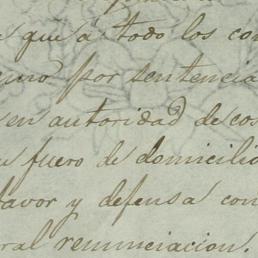 que a todo los con
por sentencia
en autoridad de cos
fuero de domicilio
favor y defensa con
ral renunciacion.